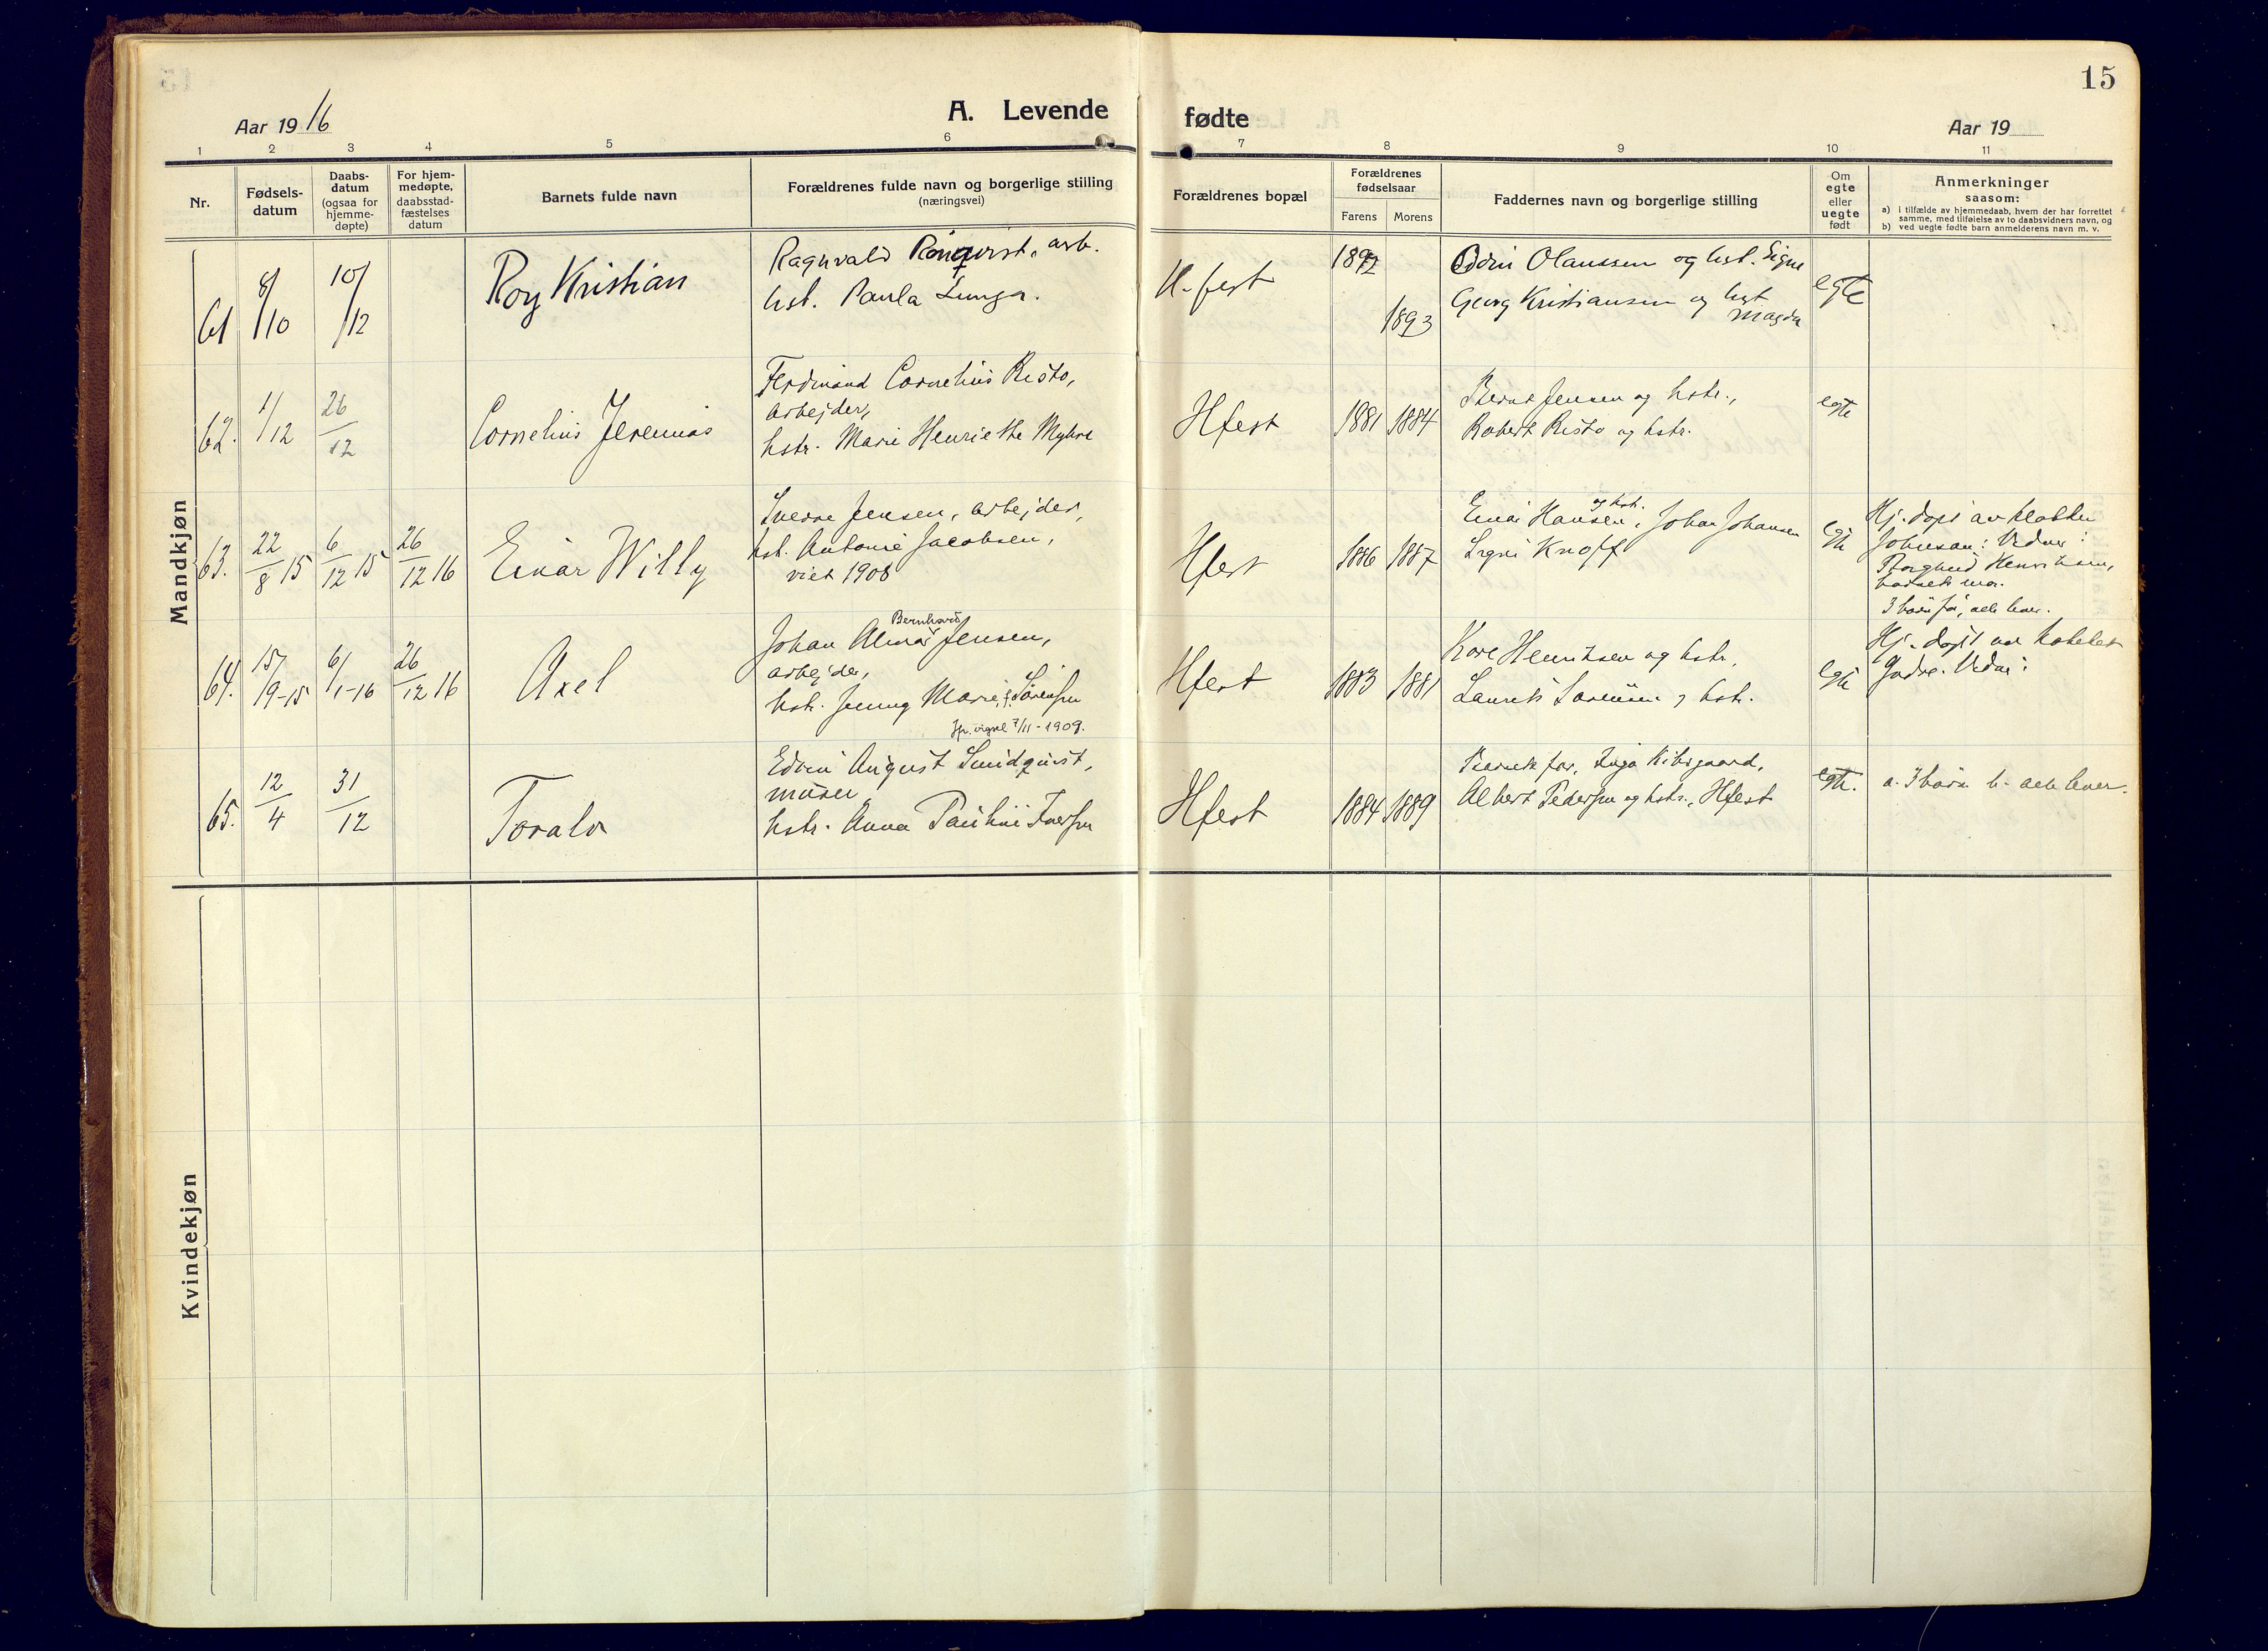 15
Aar 1916
A. Levende fødte
Aar 19
1 2 3 4 5 6 7 8 9 10 11
Nr.
Fødsels-
datum
Daabs-
datum
(ogsaa for
hjemme-
døpte)
For hjem-
medøpte,
daabsstad-
fæstelses
datum
Barnets fulde navn
Forældrenes fulde navn og borgerlige stilling
(næringsvei)
Forældrenes bopæl
Forældrenes
fødselsaar
Farens Morens
Faddernes navn og borgerlige stilling
Om
egte
eller
uegte
født
Anmerkninger
saasom:
a) i tilfælde av hjemmedaab, hvem der har forrettet
samme, med tilføielse av to daabsvidners navn, og
b) ved uegte fødte barn anmelderens navn m. v.
Mandkjøn
61 8/10 10/12
Roy Kristian
Ragnvald Rönqvist, arb.
hst. Paula Lunga.
H.fest
1892
1893
Odin Olaussen og hst. Signe
Georg Kristiansen og hst
Magda
egte
62. 1/12 26/12
Cornelius Jeremias
Ferdinand Cornelius Risto,
arbejder,
hstr. Marie Henriethe Myhre
Hfest
1881 1884
Bernt Jensen og hstr.,
Robert Risto og hstr.
egte
63. 22/8 15 6/12 15 26/12 16
Einar Willy
Sverre Jensen, arbejder,
hst. Antonie Jacobsen,
viet 1908
Hfest
1886 1887
og hst.
Einar Hansen, Johan Johansen
Signe Knoff
egte
Hj. døpt av
Johnsen: Vidner:
Borghild Henriksen,
barnets mor.
3 barn før, alle lever.
64. 15/19-15 6/1-16 26/12 16
Axel
Bernhard
Johan Almar Jensen,
arbejder,
hstr. Jenny Marie, f. Sørensen
vigsel 7/11-1909.
Hfest
1883 1881
Kore Henriksen og hstr.
Laurits Sørensen og hstr.
egte
Hj. døpt av
Vidne:
65. 12/4 31/12
Toralv
Edvin August Smidquist,
murer
hstr. Anna Pauline Iversen
Hfest
1884 1889
Barnets far, Inga Kibsgaard,
Albert Pedersen og hstr., Hfest
egte.
a. 3 barn b. alle lever.
Kvindekjøn